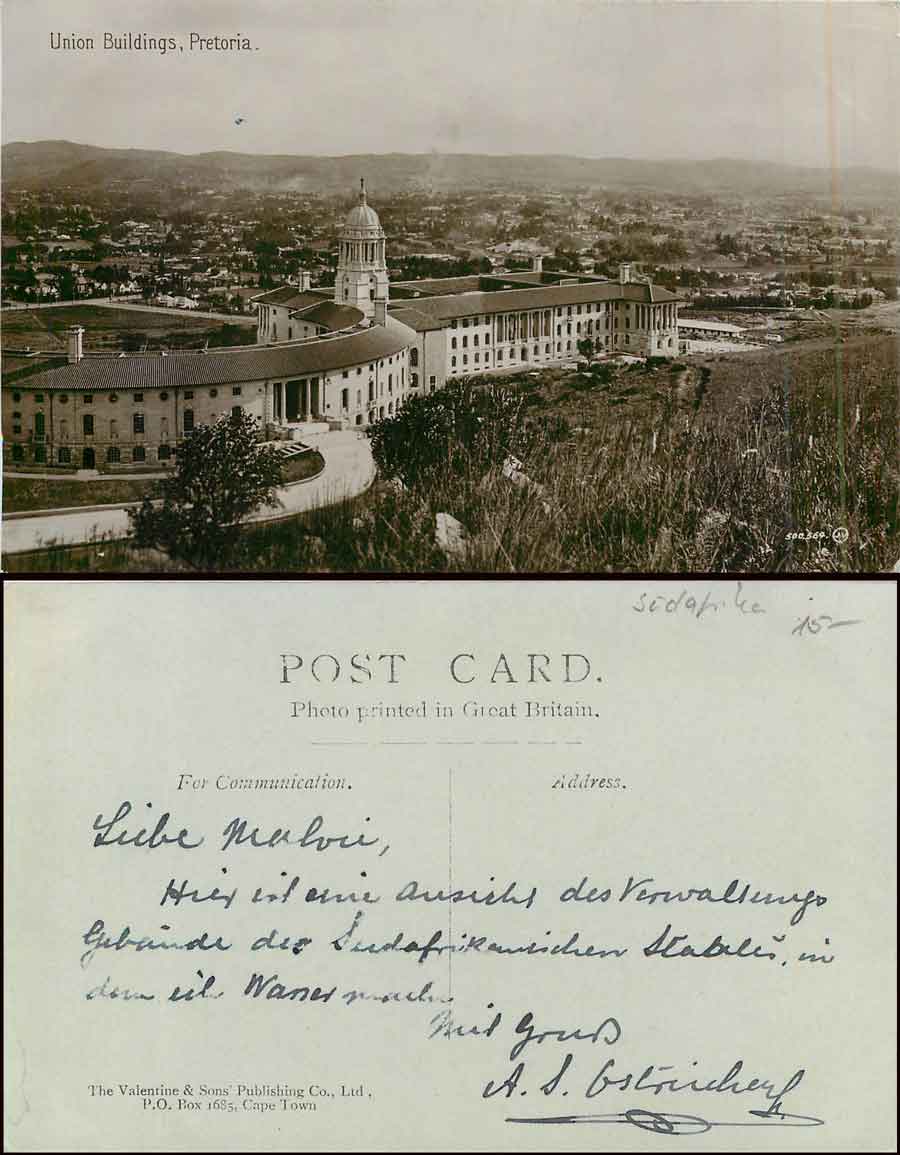 Union Buildings, Pretoria.
500,569. JV
Südafrika
15-
POST CARD.
Photo printed in Great Britain.
For Communication.
Address.
Liebe Malvie,
Hier ist eine Ansicht des Verwaltungs
Gebäude des Südafrikanischen Staates, in
dem ich Wasser mache
Mit Gruß
A. S.
The Valentine & Sons' Publishing Co., Ltd,
P.O. Box 1685, Cape Town